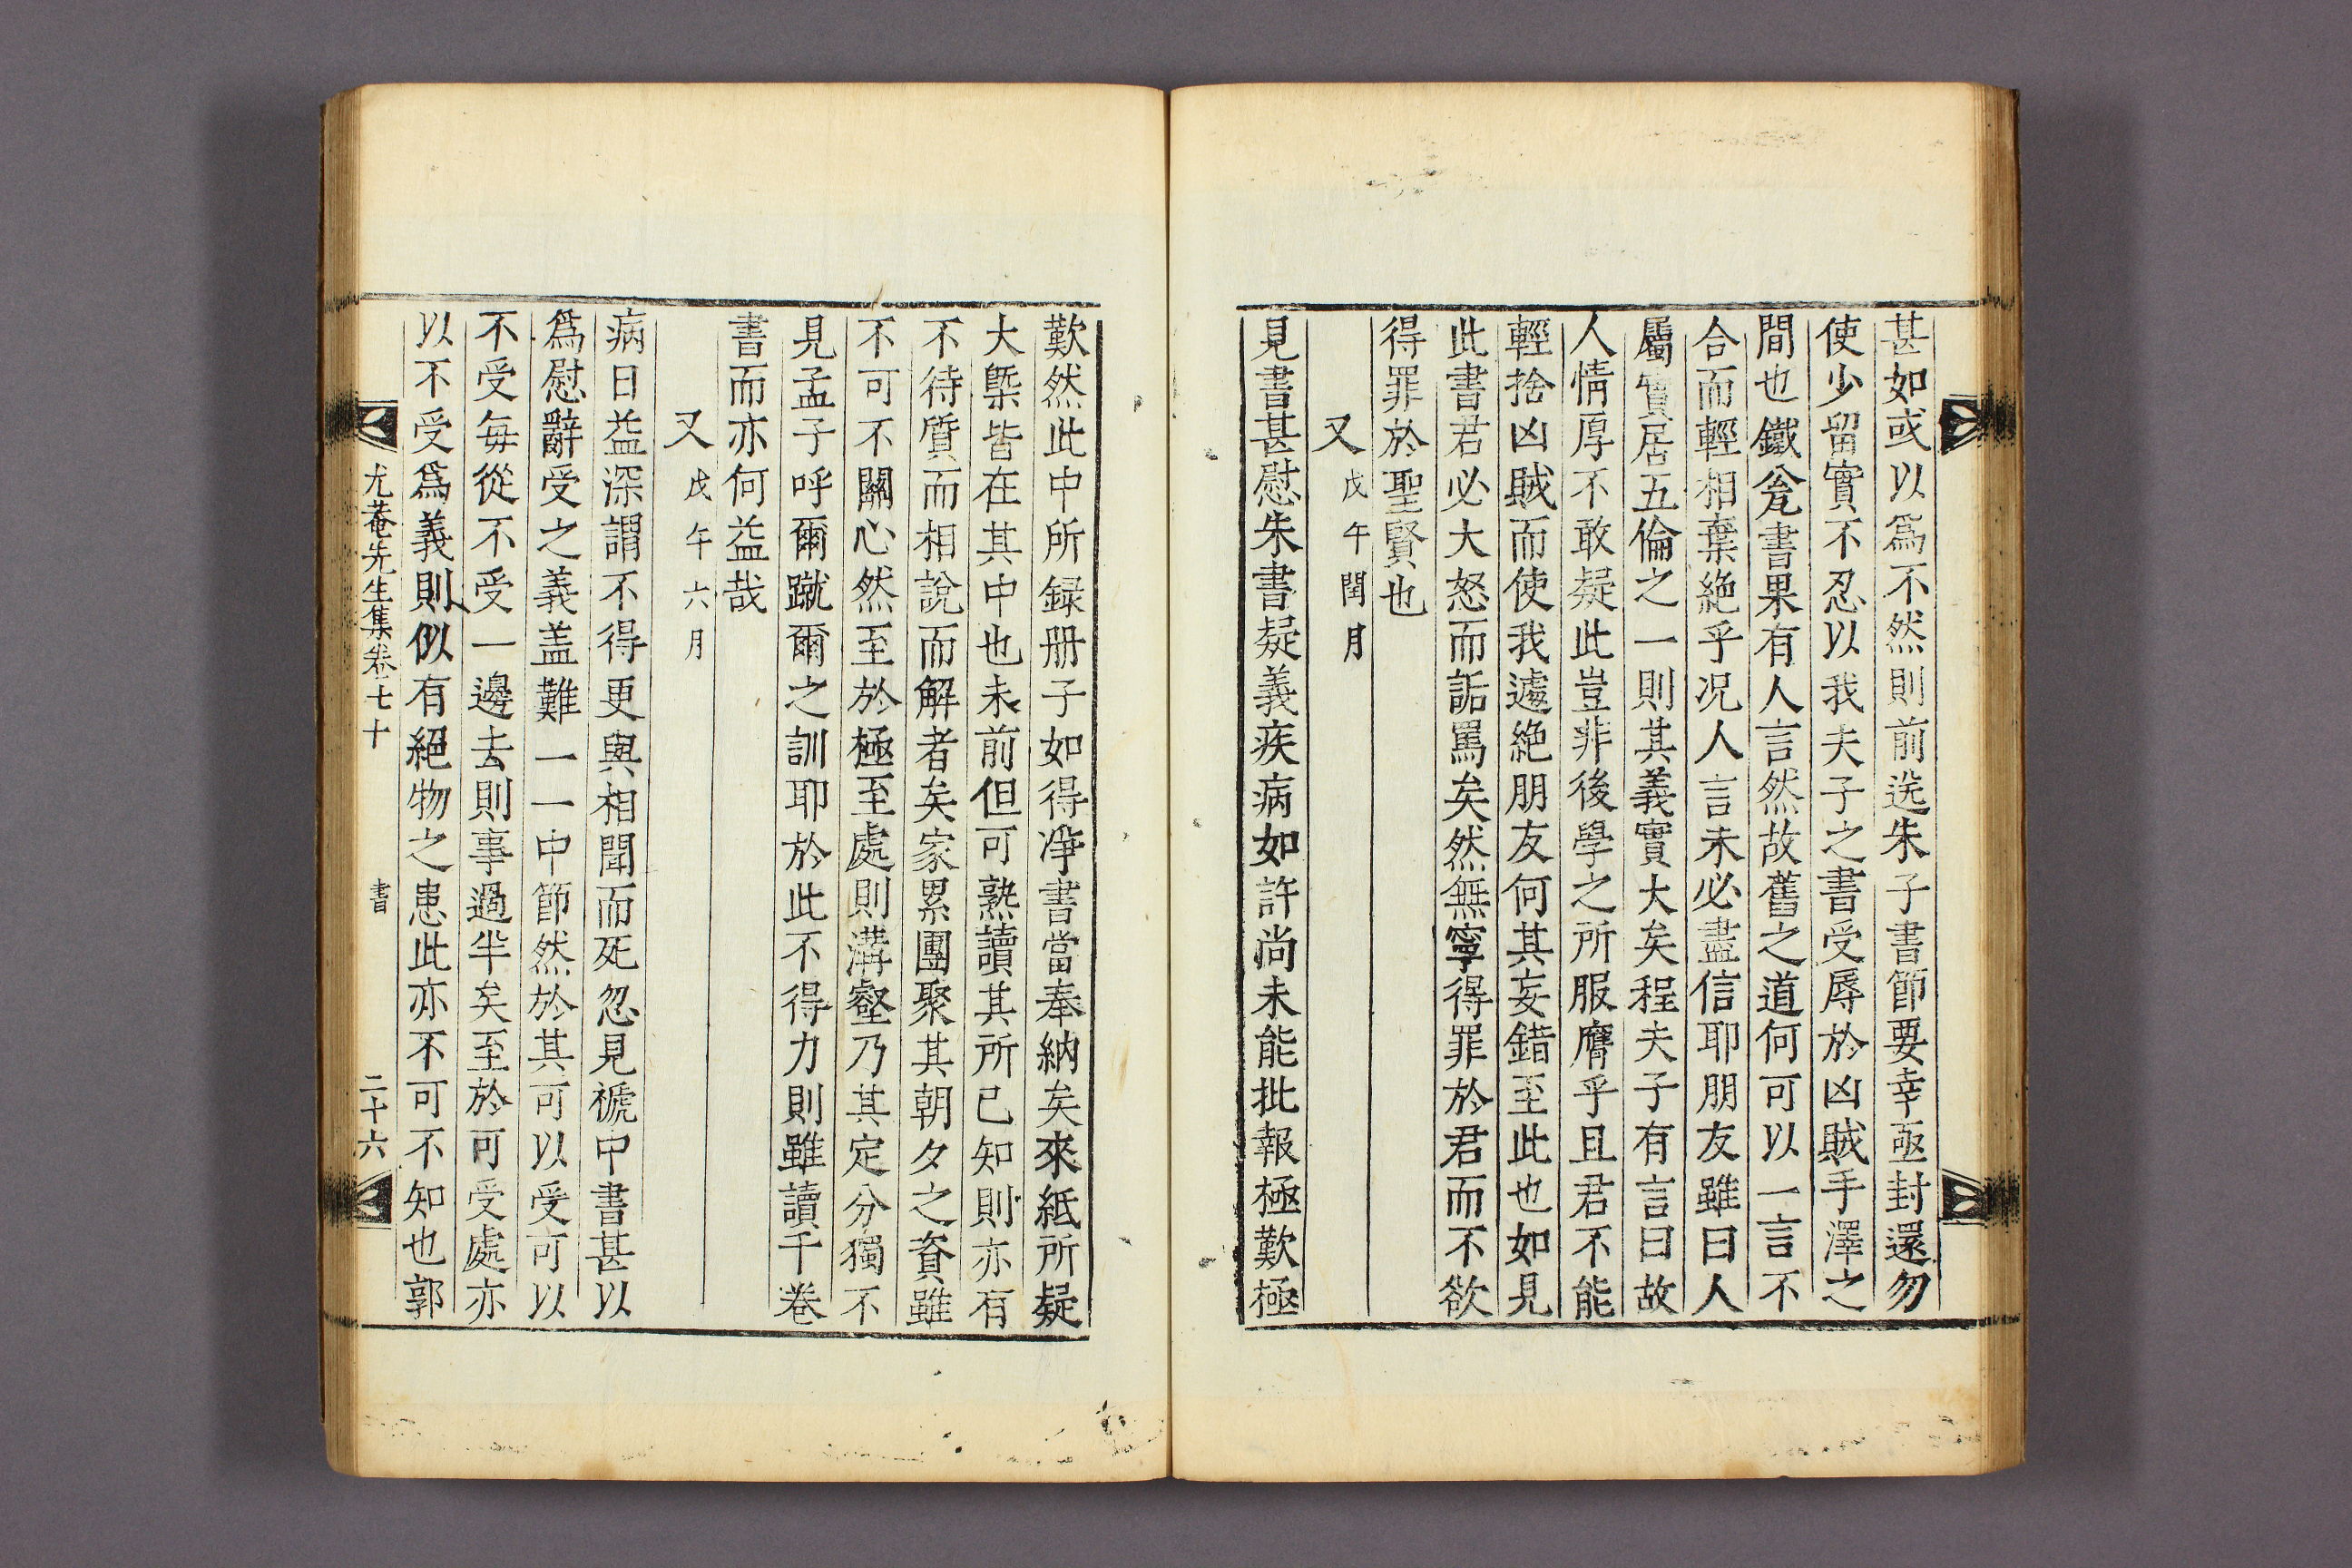 甚如或以爲不然則前送朱子書節要幸亟封還勿
使少留實不忍以我夫子之書受辱於凶賊手澤之
間也鐵瓮書果有人言然故舊之道何可以一言不
合而輕相棄絶乎况人言未必盡信耶朋友雖曰人
屬實居五倫之一則其義實大矣程夫子有言曰故
人情厚不敢疑此豈非後學之所服膺乎且君不能
輕捨凶賊而使我遽絶朋友何其妄錯至此也如見
此書君必大怒而詬罵矣然無寧得罪於君而不欲
得罪於聖賢也
又戊午閏月
見書甚慰朱書疑義疾病如許尚未能批報極歎極
歎然此中所録册子如得淨書當奉納矣來紙所疑
大槩皆在其中也未前但可熟讀其所已知則亦有
不待質而相說而解者矣家累團聚其朝夕之資雖
不可不關心然至於極至處則溝壑乃其定分獨不
見孟子呼爾蹴爾之訓耶於此不得力則雖讀千卷
書而亦何益哉
又戊午六月
病日益深謂不得更與相聞而死忽見褫中書甚以
爲慰辭受之義盖難一一中節然於其可以受可以
不受每從不受一邊去則事過半矣至於可受處亦
以不受爲義則似有絕物之患此亦不可不知也郭
尤菴先生集卷七十 書 二十六